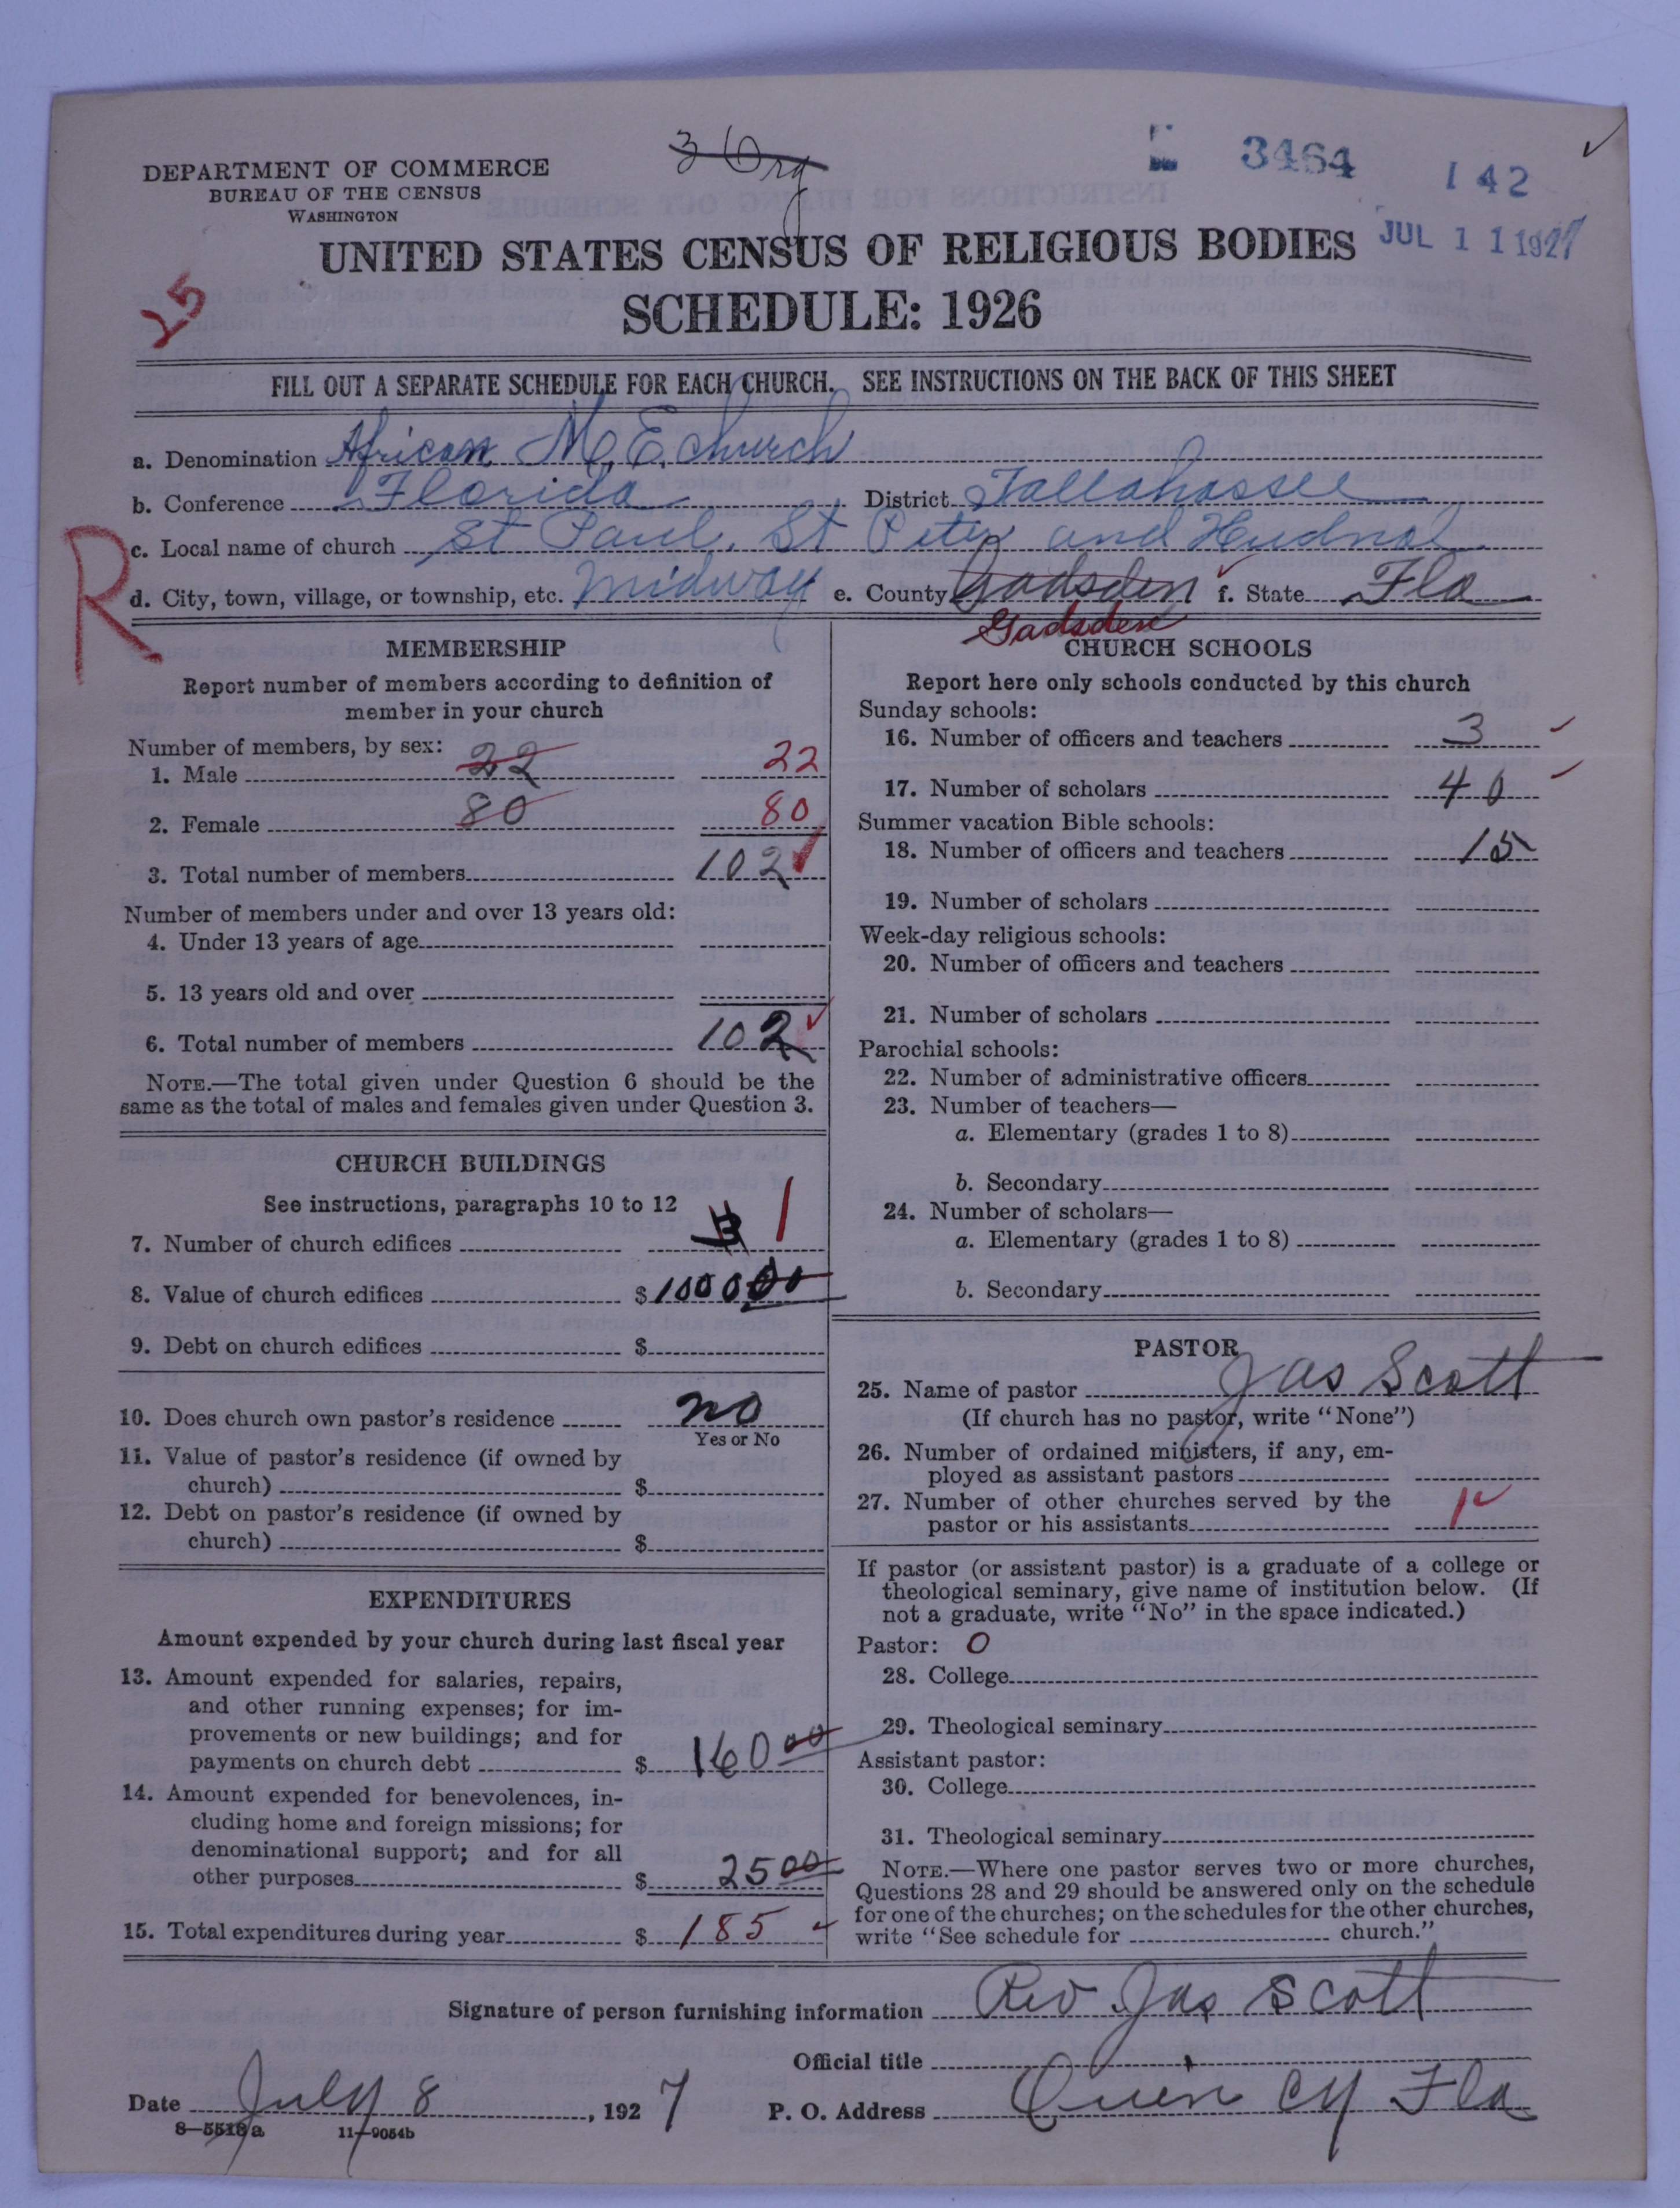 DEPARTMENT OF COMMERCE
BUREAU OF THE CENSUS
WASHINGTON
3 Org
3464
142
JUL 11 1927
UNITED STATES CENSUS OF RELIGIOUS BODIES
SCHEDULE: 1926
25
FILL OUT A SEPARATE SCHEDULE FOR EACH CHURCH. SEE INSTRUCTIONS ON THE BACK OF THIS SHEET
a. Denomination African M. E. Church
b. Conference Florida District Tallahassee
c. Local name of church St Paul, St Peter and Hudnal
R
d. City, town, village, or township, etc. Midway e. County Gadsden f. State Fla
Gadsden
MEMBERSHIP
Report number of members according to definition of
member in your church
Number of members, by sex:
1. Male 22 22
2. Female 80 80
3. Total number of members 102
Number of members under and over 13 years old:
4. Under 13 years of age
5. 13 years old and over
6. Total number of members 102
NOTE.—The total given under Question 6 should be the
same as the total of males and females given under Question 3.
CHURCH BUILDINGS
See instructions, paragraphs 10 to 12
7. Number of church edifices 3 1
8. Value of church edifices $ 1000 00
9. Debt on church edifices $
10. Does church own pastor's residence no
Yes or No
11. Value of pastor's residence (if owned by
church) $
12. Debt on pastor's residence (if owned by
church) $
EXPENDITURES
Amount expended by your church during last fiscal year
13. Amount expended for salaries, repairs,
and other running expenses; for im-
provements or new buildings; and for
payments on church debt $ 160 00
14. Amount expended for benevolences, in-
cluding home and foreign missions; for
denominational support; and for all
other purposes $ 25 00
15. Total expenditures during year $ 185
CHURCH SCHOOLS
Report here only schools conducted by this church
Sunday schools:
16. Number of officers and teachers 3
17. Number of scholars 40
Summer vacation Bible schools:
18. Number of officers and teachers 15
19. Number of scholars
Week-day religious schools:
20. Number of officers and teachers
21. Number of scholars
Parochial schools:
22. Number of administrative officers
23. Number of teachers—
a. Elementary (grades 1 to 8)
b. Secondary
24. Number of scholars—
a. Elementary (grades 1 to 8)
b. Secondary
PASTOR
25. Name of pastor Jas Scott
(If church has no pastor, write "None")
26. Number of ordained ministers, if any, em-
ployed as assistant pastors
27. Number of other churches served by the
pastor or his assistants 1
If pastor (or assistant pastor) is a graduate of a college or
theological seminary, give name of institution below. (If
not a graduate, write "No" in the space indicated.)
Pastor: 0
28. College
29. Theological seminary
Assistant pastor:
30. College
31. Theological seminary
NOTE.—Where one pastor serves two or more churches,
Questions 28 and 29 should be answered only on the schedule
for one of the churches; on the schedules for the other churches,
write "See schedule for church."
Signature of person furnishing information Rev Jas Scott
Official title
Date July 8, 1927 P. O. Address Quincy Fla
8—5518a 11—9054b